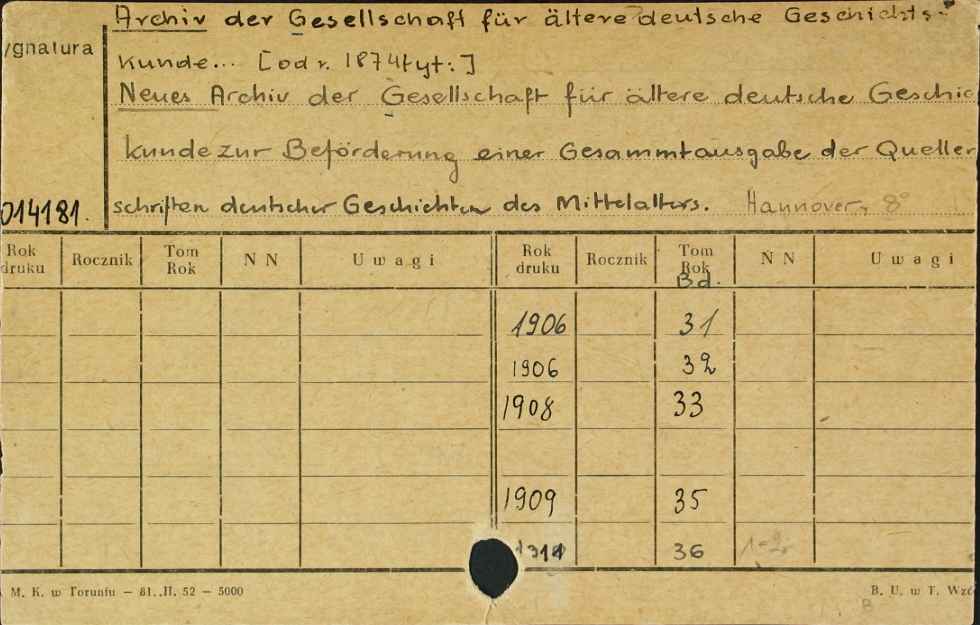 Archiv der Gesellschaft für ältere deutsche Geschichts-
ygnatura
kunde... [od r. 1874 tyt:]
Neues Archiv der Gesellschaft für ältere deutsche Geschic
kunde zur Beförderung einer Gesammtausgabe der Queller
014181. schriften deutscher Geschichten des Mittelalters. Hannover, 8°
Rok druku Rocznik Tom Rok N N Uwagi Rok druku Rocznik Tom Rok N N Uwagi
Bd.
1906 31
1906 32
1908 33
1909 35
36
M. K. w Toruniu — 81..II. 52 — 5000 B. U. w T. Wzó